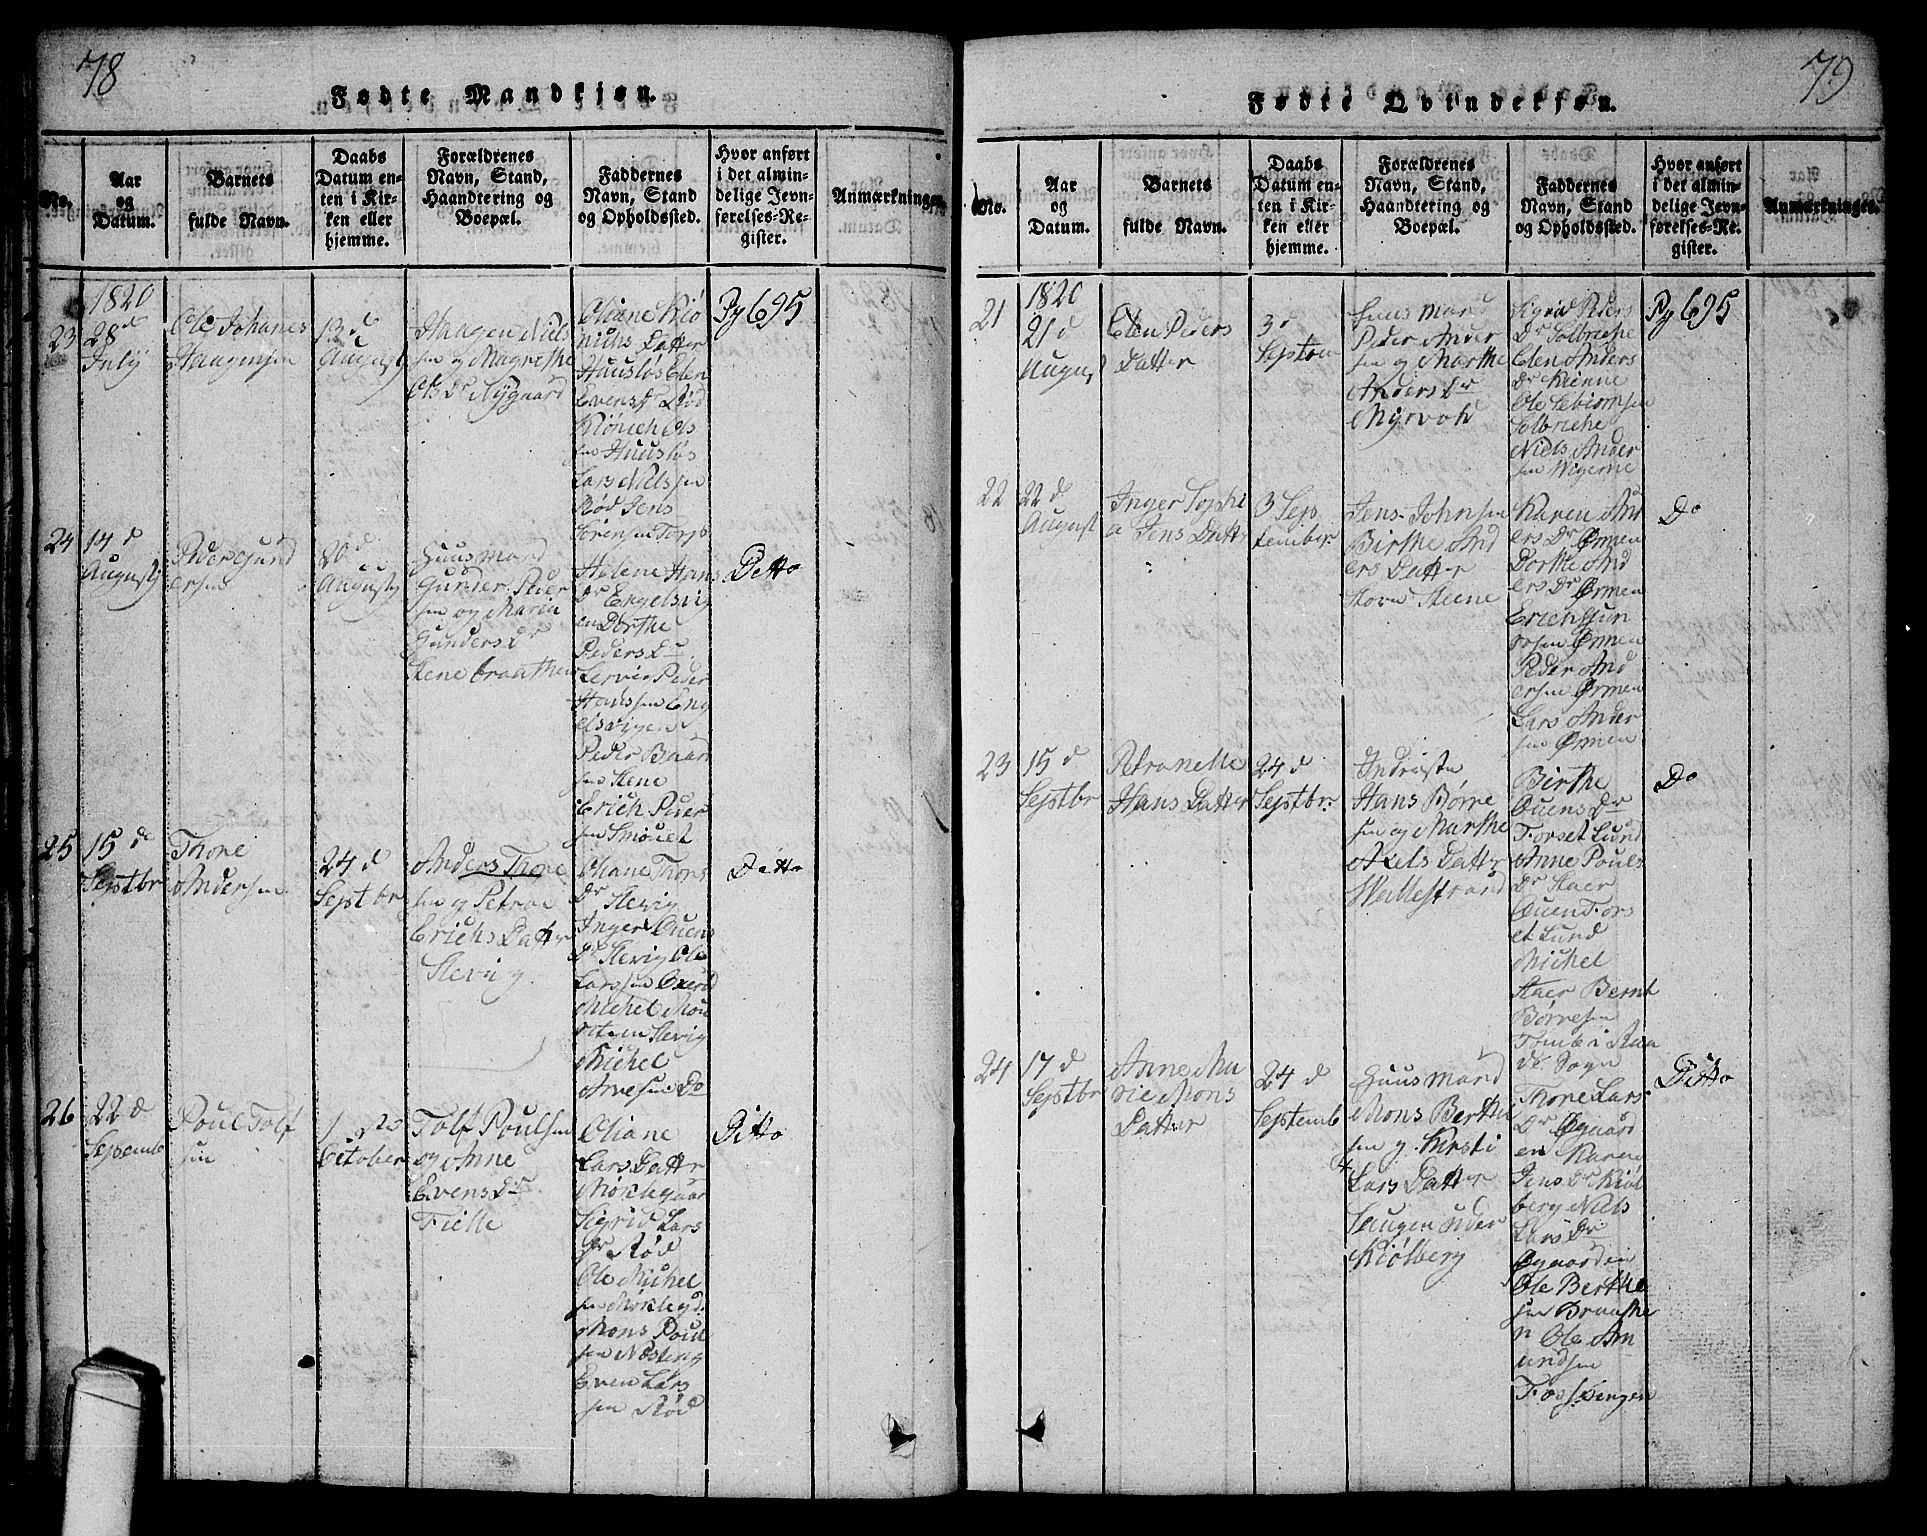 78
Fødte Mandkjøn.
No.
Aar
og
Datum.
Barnets
fulde Navn.
Daabs
Datum en-
ten i Kir-
ken eller
hjemme.
Forældrenes
Navn, Stand,
Haandtering og
Boepæl.
Faddernes
Navn, Stand
og Opholdssted.
Hvor anført
i det almin-
delige Jevn-
førelses-Re-
gister.
Anmærkninger.
1820
23 28d
July
Ole Johanes
Haagensen
13d
August
Haagen Niels
sen og Magrethe
Ols Dr Nygaard
Oliane Kiø
nichs Datter
Huusløs Elen
Evens Dr Rød
Kiønich Ols
sen Huusløs
Lars Nielssen
Rød Jens
Sørensen Torp
Pg 695
24 14d
August
Peder Gund
ersen
20d
August
Huusmand
Gunder Peder
sen og Maria
Gunders Dr
Stene braathen
Helene Hans
Dr Engelsvig
en Dorthe
Peders Dr
Lervig Peder
Hanssen Eng
elsvigen
Peder Baar
sen Stene
Erich Peder
sen Smouet
Ditto
25 15d
Septbr
Thore
Andersen
24d
Septbr
Anders Thore
sen og Petrae
Erichs Datter
Slevig
Oliane Thors
Dr Slevig
Inger Ouens
Dr Slevig Ole
Larssen Oxerød
Michel Mou
ritzen Slevig
Michel
Arvesen Do
Ditto
26 22d
Septemb
Poul Tolf
sen
1
October
Tolf Poulsen
og Anne
Evens Dr
Fielle
Oliane
Lars Datter
Møklegaar
Sigrid Lars
Dr Rød
Ole Michel
sen Møklegd.
Mons Poul
sen Nøsteng
Even Lars
sen Rød
Ditto
79
Fødte Qvindekjøn.
No.
Aar
og
Datum.
Barnets
fulde Navn.
Daabs
Datum en-
ten i Kir-
ken eller
hjemme.
Forældrenes
Navn, Stand,
Haandtering og
Boepæl.
Faddernes
Navn, Stand
og Opholdssted.
Hvor anført
i det almin-
delige Jevn-
førelses-Re-
gister.
Anmærkninger.
1820
21 21d
August
Elen Peders
Datter
3d
Septem
Huusmand
Peder Ander
sen og Marthe
Anders Dr
Myrvold
Sigrid Peders
Dr Solbriche
Elen Anders
Dr Kienne
Ole Sebiørnsen
Solbriche
Niels Ander
sen Wigerne
Pg 695
22 22d
August
Inger Sophi
a Jens Datter
3 Sep
tember
Jens Johnsen
Birthe And
ers Datter
Store Steene
Karen And
ers Dr Ørmen
Dorthe And
ers Dr Ørmen
Erich Gun
Ørmen
Peder And
ersen Ørmen
Lars Ander
sen Ørmen
Do
23 15d
Septbr
Petranelle
Hans Datter
24d
Septbr.
Indriste
Hans Børre
sen og Marthe
Axels Datter
Wallestrand
Birthe
Ouens Dr
Torset Lund
Anne Pouls
Dr Staer
Ouen Tors
et Lund
Michel
Staer Bernt
Børresen
Tombe i Raa
de Sogn
Do
24 17d
Septbr
Anne Ma
rie Mons
Datter
24d
Septemb
Huusmand
Mons Berthe
sen og Kirsti
Lars Datter
Haugen under
Kiølberg
Thore Lars
Dr Øgaard
en Karen
Jens Dr Kiøl
berg Niels
Lars Dr
Øgaarden
Ole Berthe
sen Braathe
n Ole Am
undsen
Fosskengen
Ditto